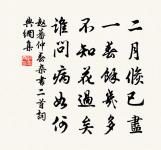 二月倏已盡
一春餘幾多
不知花過矣
誰問病如何
趙蕃仲春書二首詞
典網集